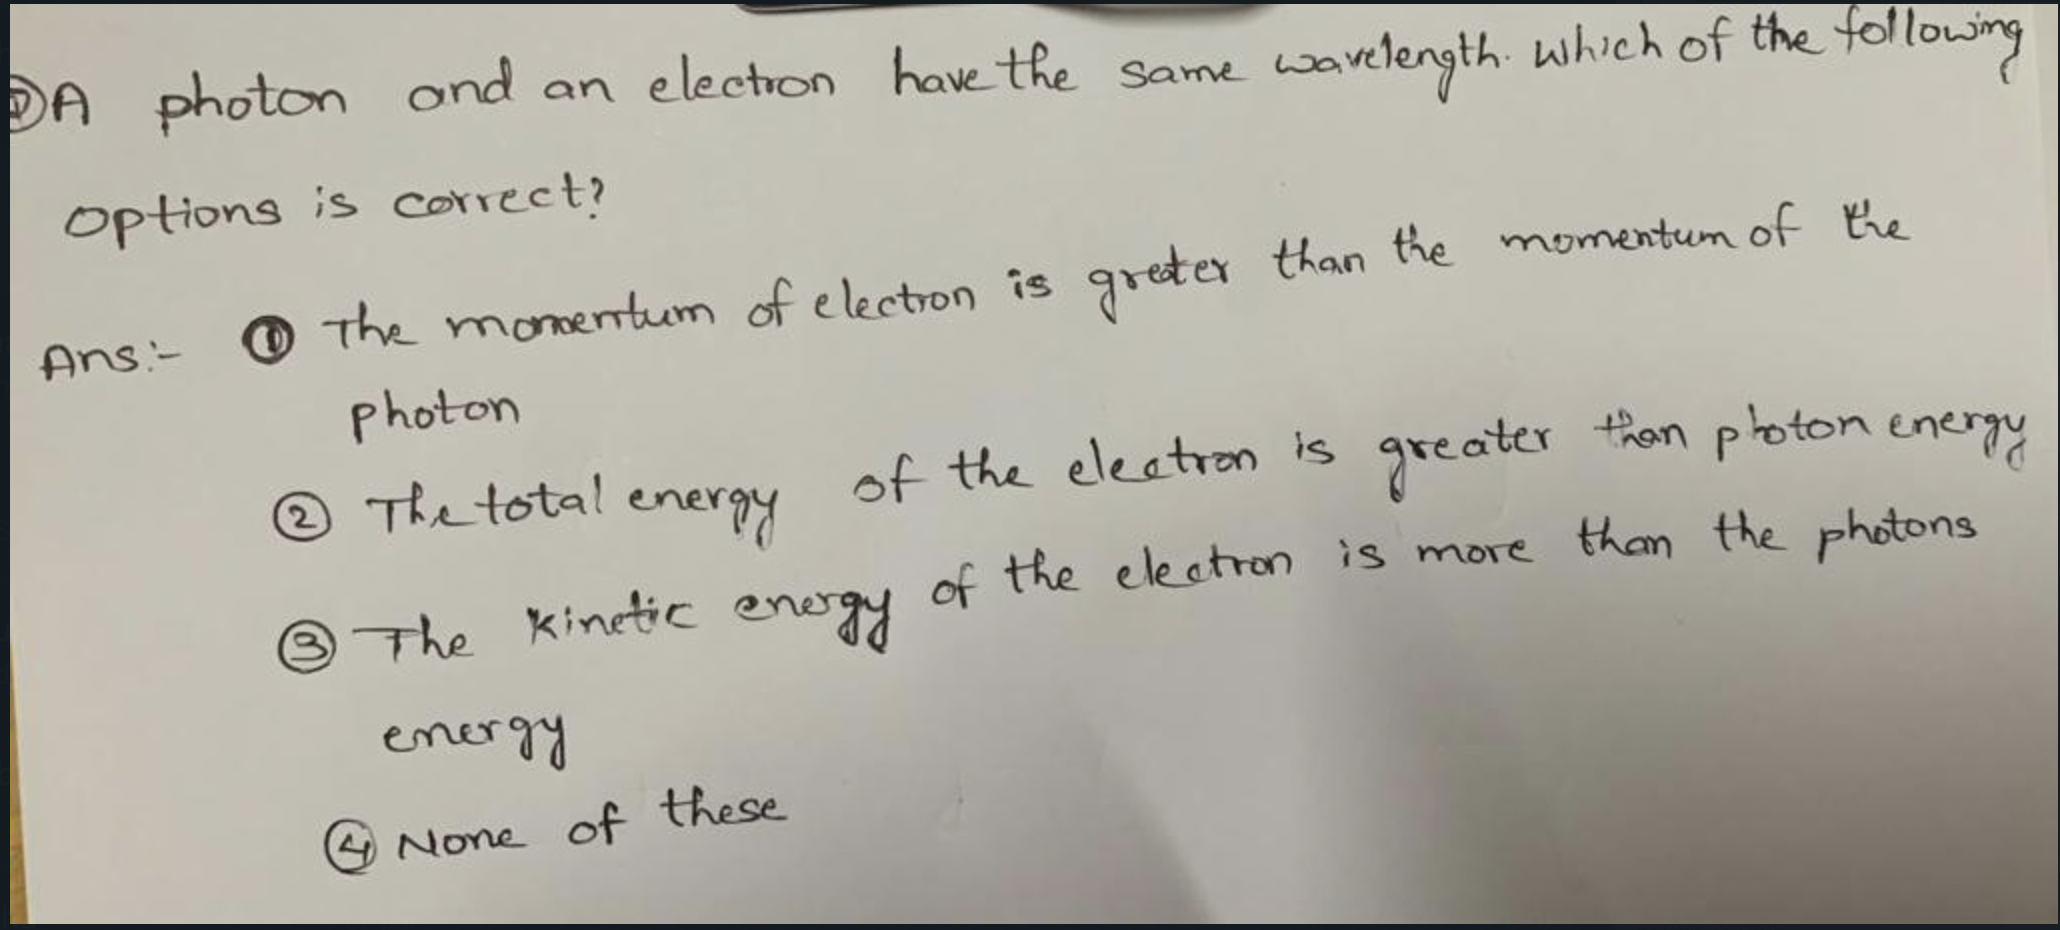 ① A photon and an electron have the same wavelength. Which of the following
options is correct?
Ans:- ① The momentum of electron is greter than the momentum of the
photon
② The total energy of the electron is greater than photon energy
③ The kinetic energy of the electron is more than the photons
energy
④ None of these